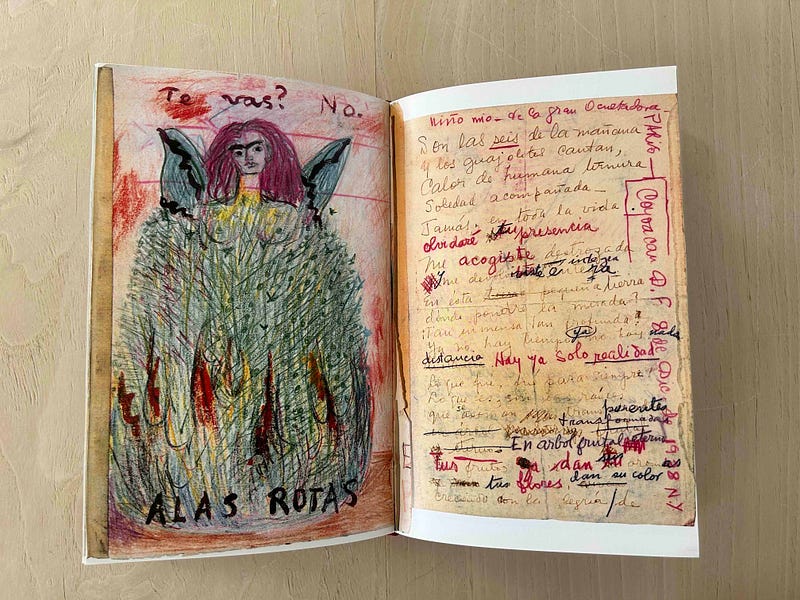 Te vas? No.
ALAS ROTAS
Niño mio - de la gran Ocultadora
Son las seis de la mañana
y los guajolotes cantan,
Calor de humana ternura
Soledad acompañada -
Jamás, en toda la vida
olvidaré tu presencia
Me acogiste destrozada
y me devolviste entera íntegra
En ésta pequeña tierra
dónde pondré la mirada?
Tan inmensa tan profunda!
Ya no hay tiempo, no hay nada
distancia. Hay ya solo realidad
Lo que fué, fué para siempre!
Lo que es, son las raices
que se asoman transparentes
transformadas
En arbol frutal eterno
tus frutas dan
tus flores dan su color
creciendo con la alegría de
PARIS - Coyoacan D.F. 8 de Dic. de 1938 NY